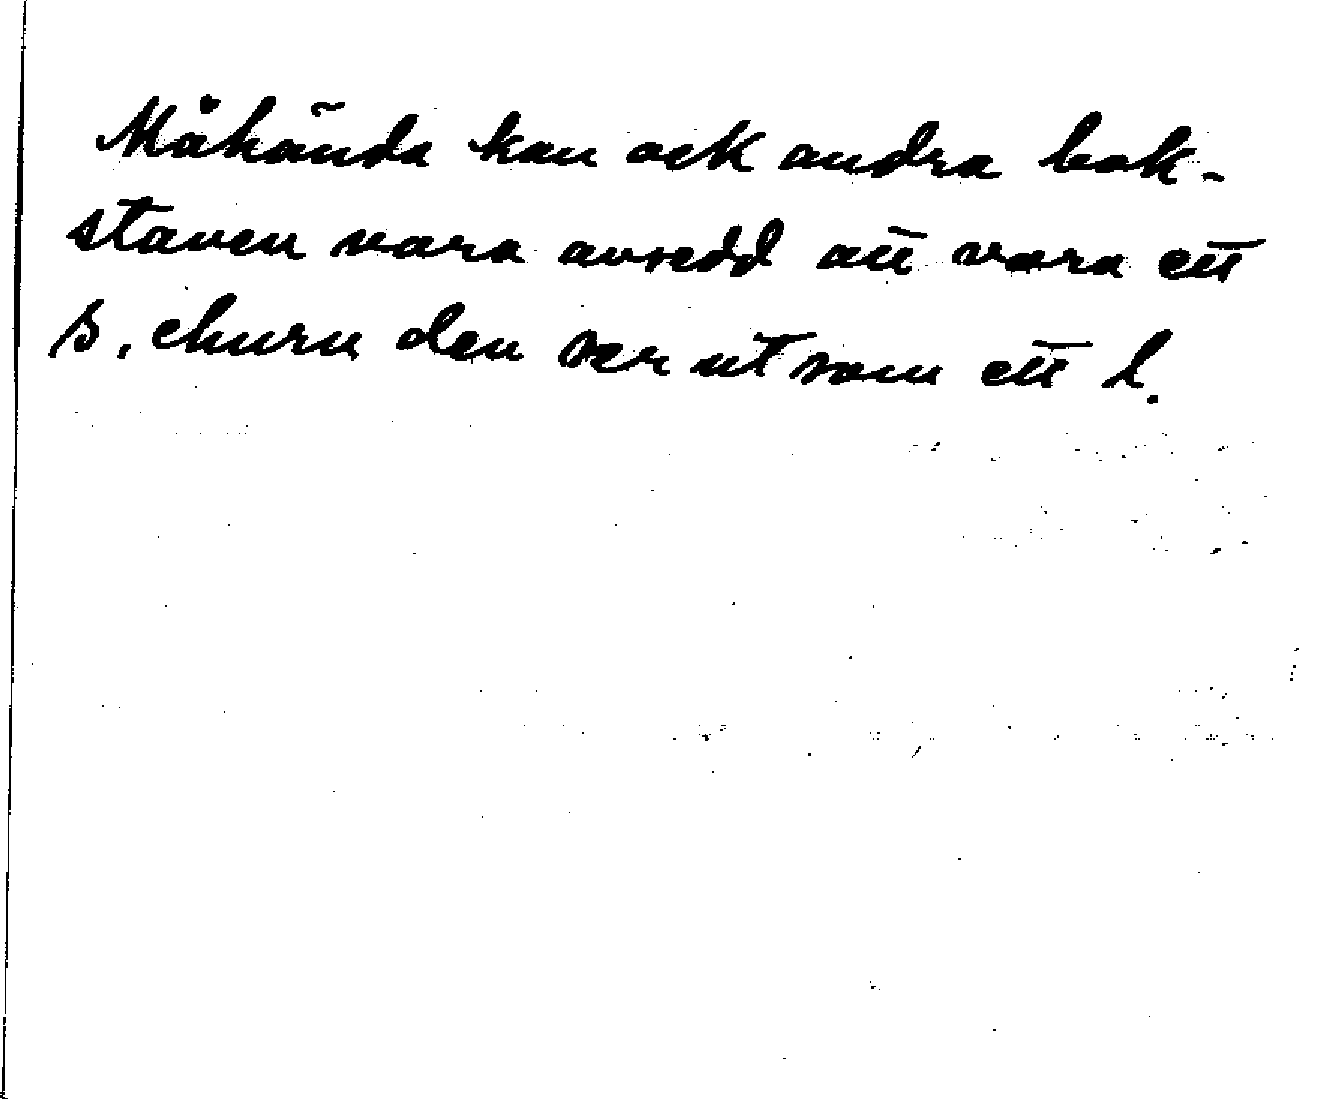 Måhända kan ock andra bok-
staven vara avsedd att vara ett
s, ehuru den ser ut som ett l.